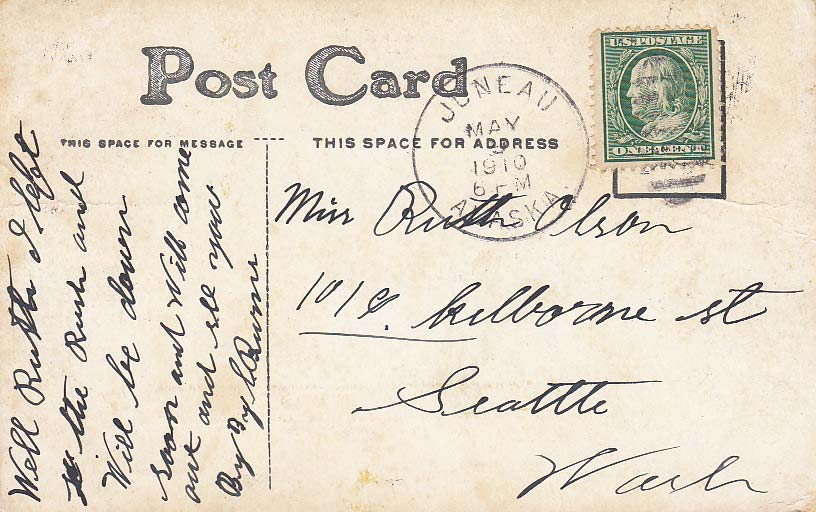 Post Card
THIS SPACE FOR MESSAGE
THIS SPACE FOR ADDRESS
JUNEAU
MAY
1910
6 PM
ALASKA
U.S. POSTAGE
ONE CENT
Miss Ruth Olson
Kilborne st
Seattle
Wash
Well Ruth I left
the Rush and
Will be down
soon and Will come
out and see you
By By